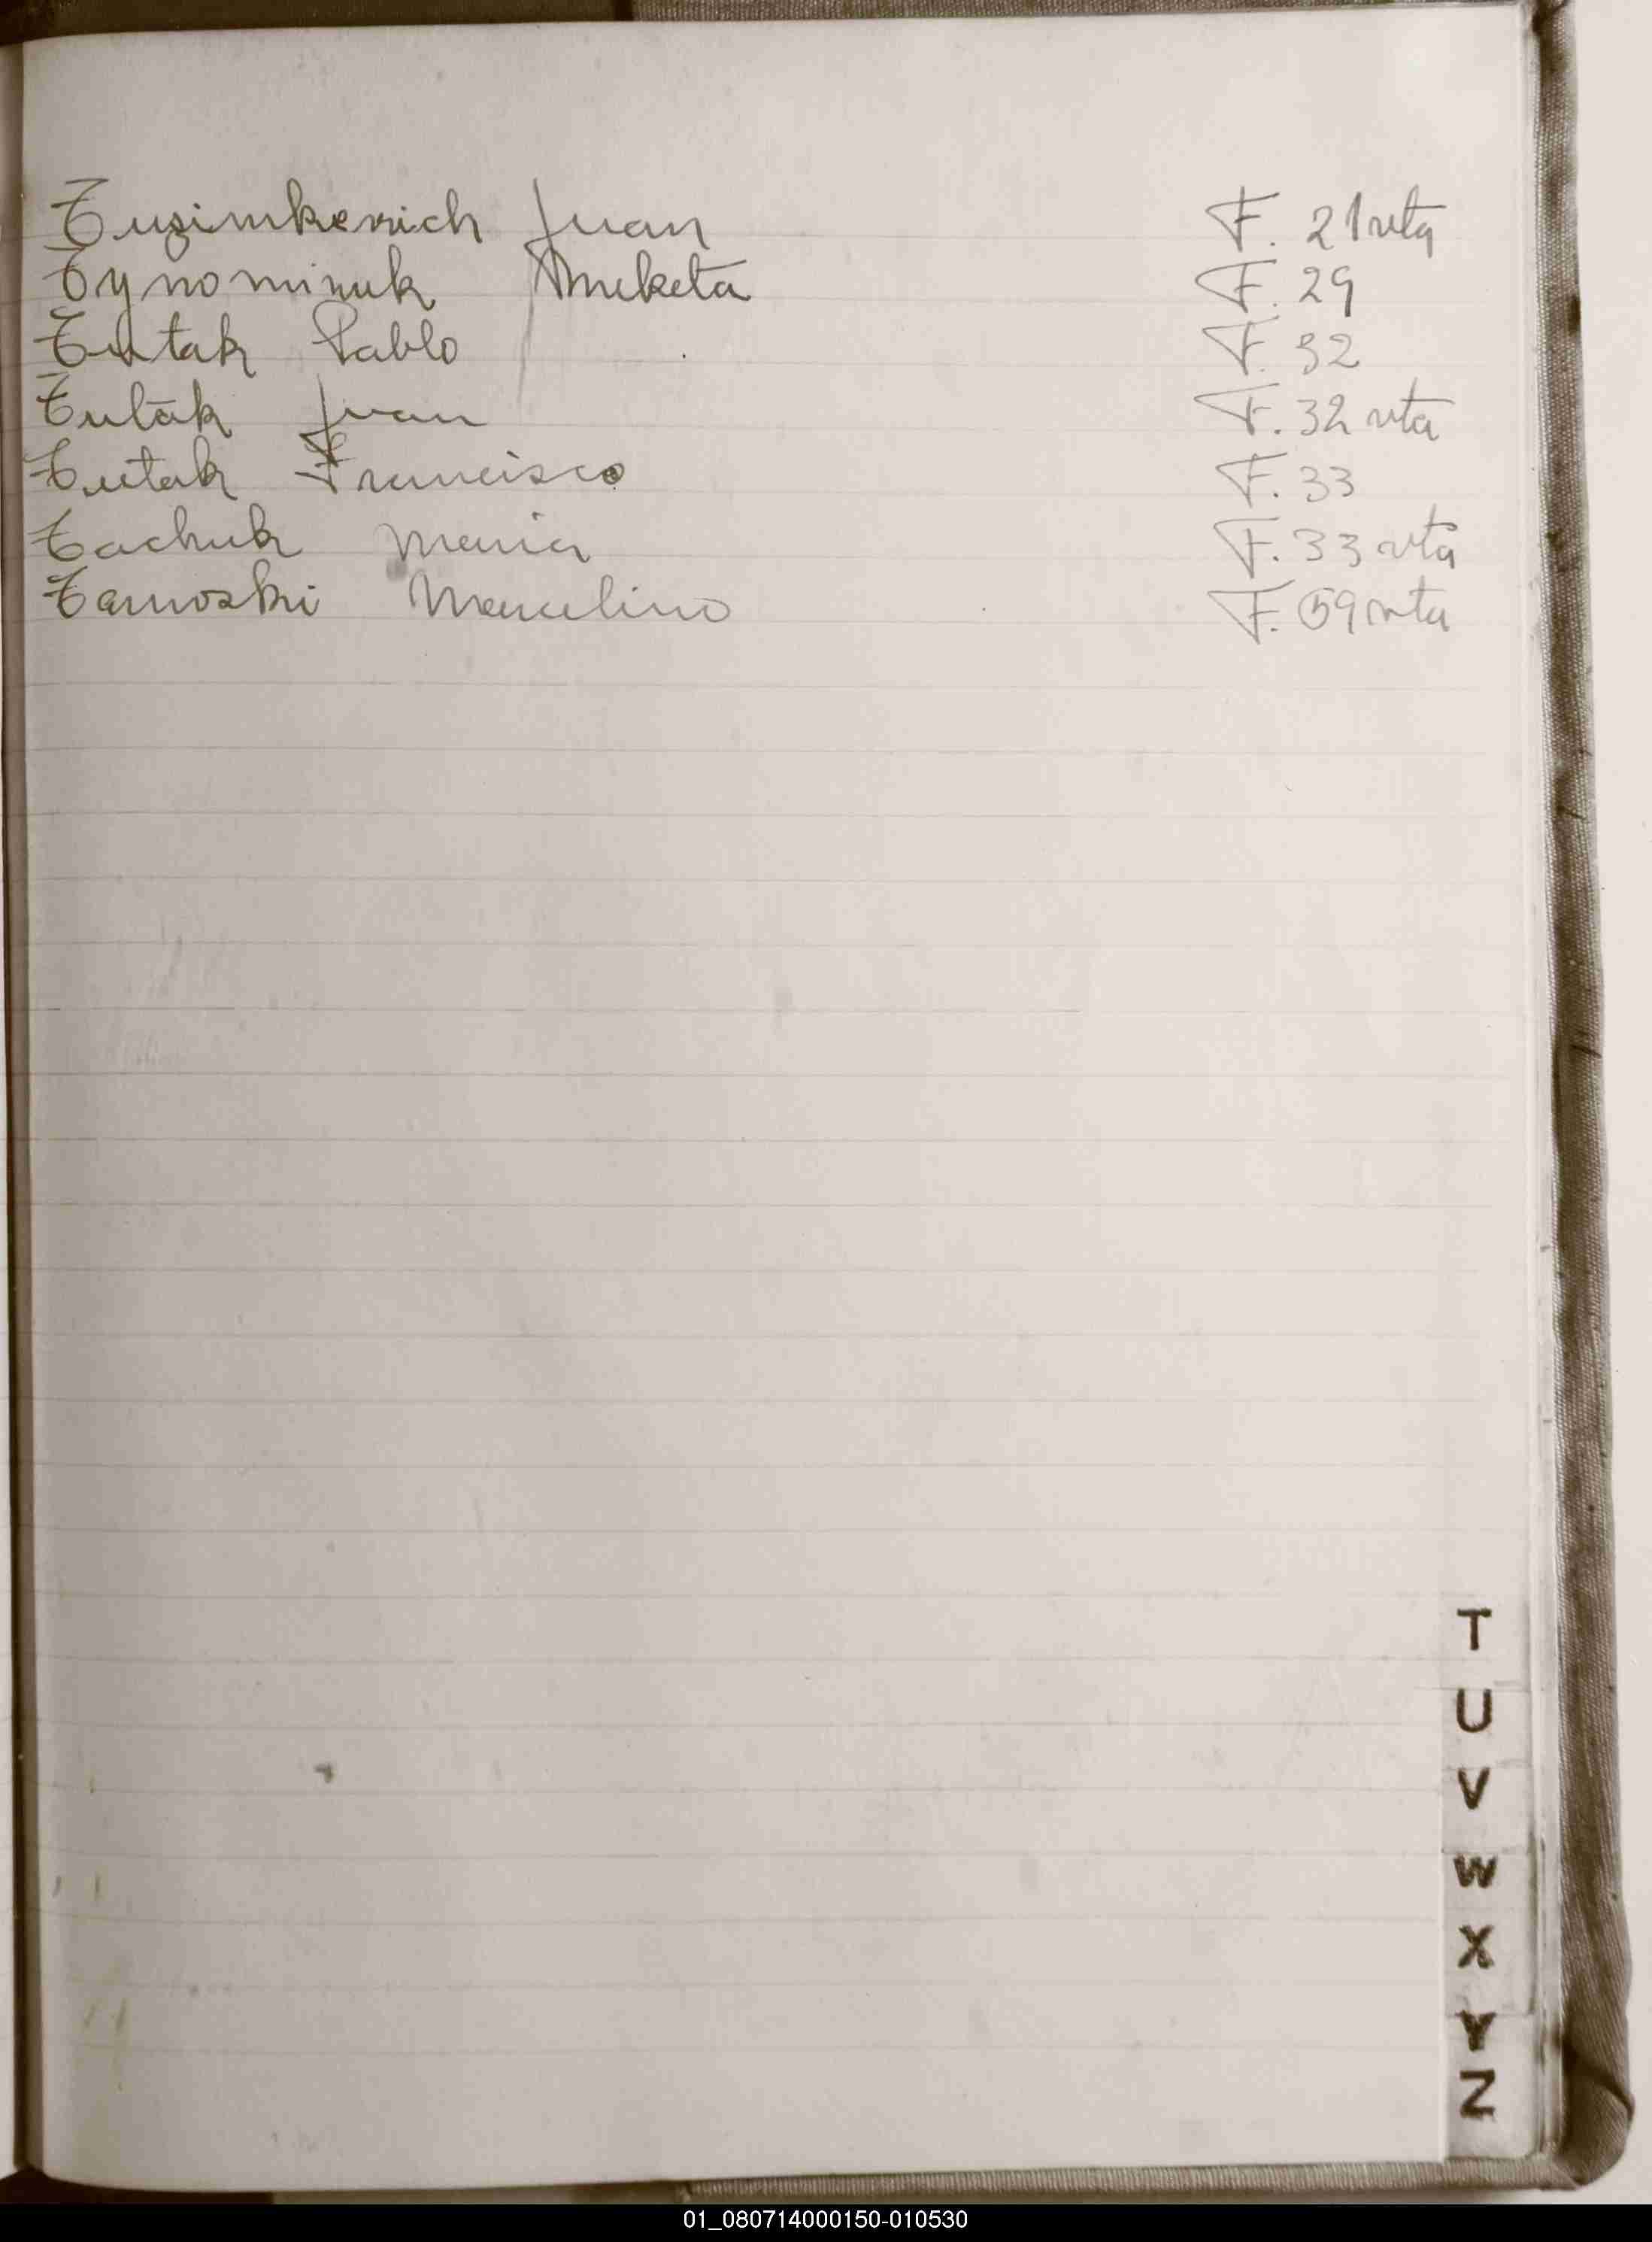 Tusimkevich Juan F. 21 vta
Tynominuk Miketa F. 29
Tutak Pablo F. 32
Tutak Juan F. 32 vta
Tutak Francisco F. 33
Tachuk Maria F. 33 vta
Tarnoski Marcelino F. 59 vta
T
U
V
W
X
Y
Z
01_080714000150-010530